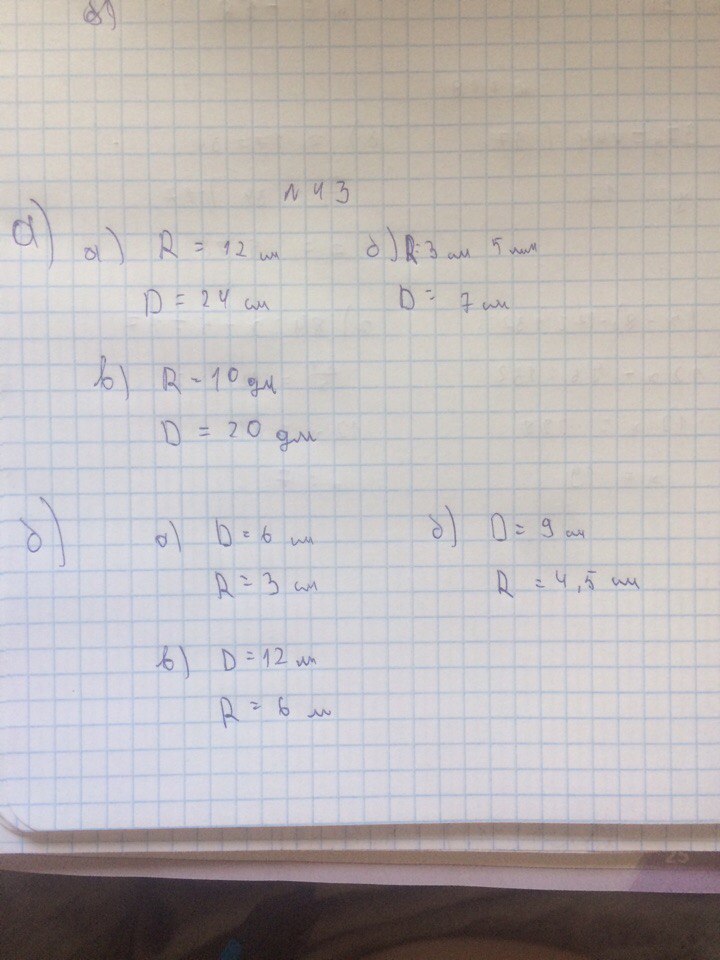 в)
N 43
а) а) R = 12 см б) R = 3 см 5 мм
D = 24 см D = 7 см
в) R = 10 дм
D = 20 дм
б) а) D = 6 см б) D = 9 см
R = 3 см R = 4,5 см
в) D = 12 м
R = 6 м